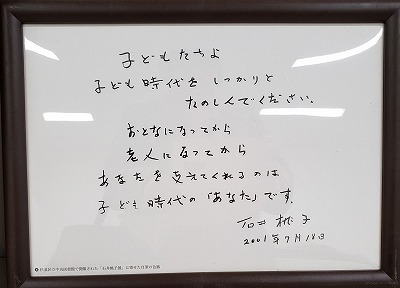 子どもたちよ
子ども時代を しっかりと
たのしんでください。
おとなになってから
老人になってから
あなたを支えてくれるのは
子ども時代の「あなた」です。
石井桃子
2001年7月18日